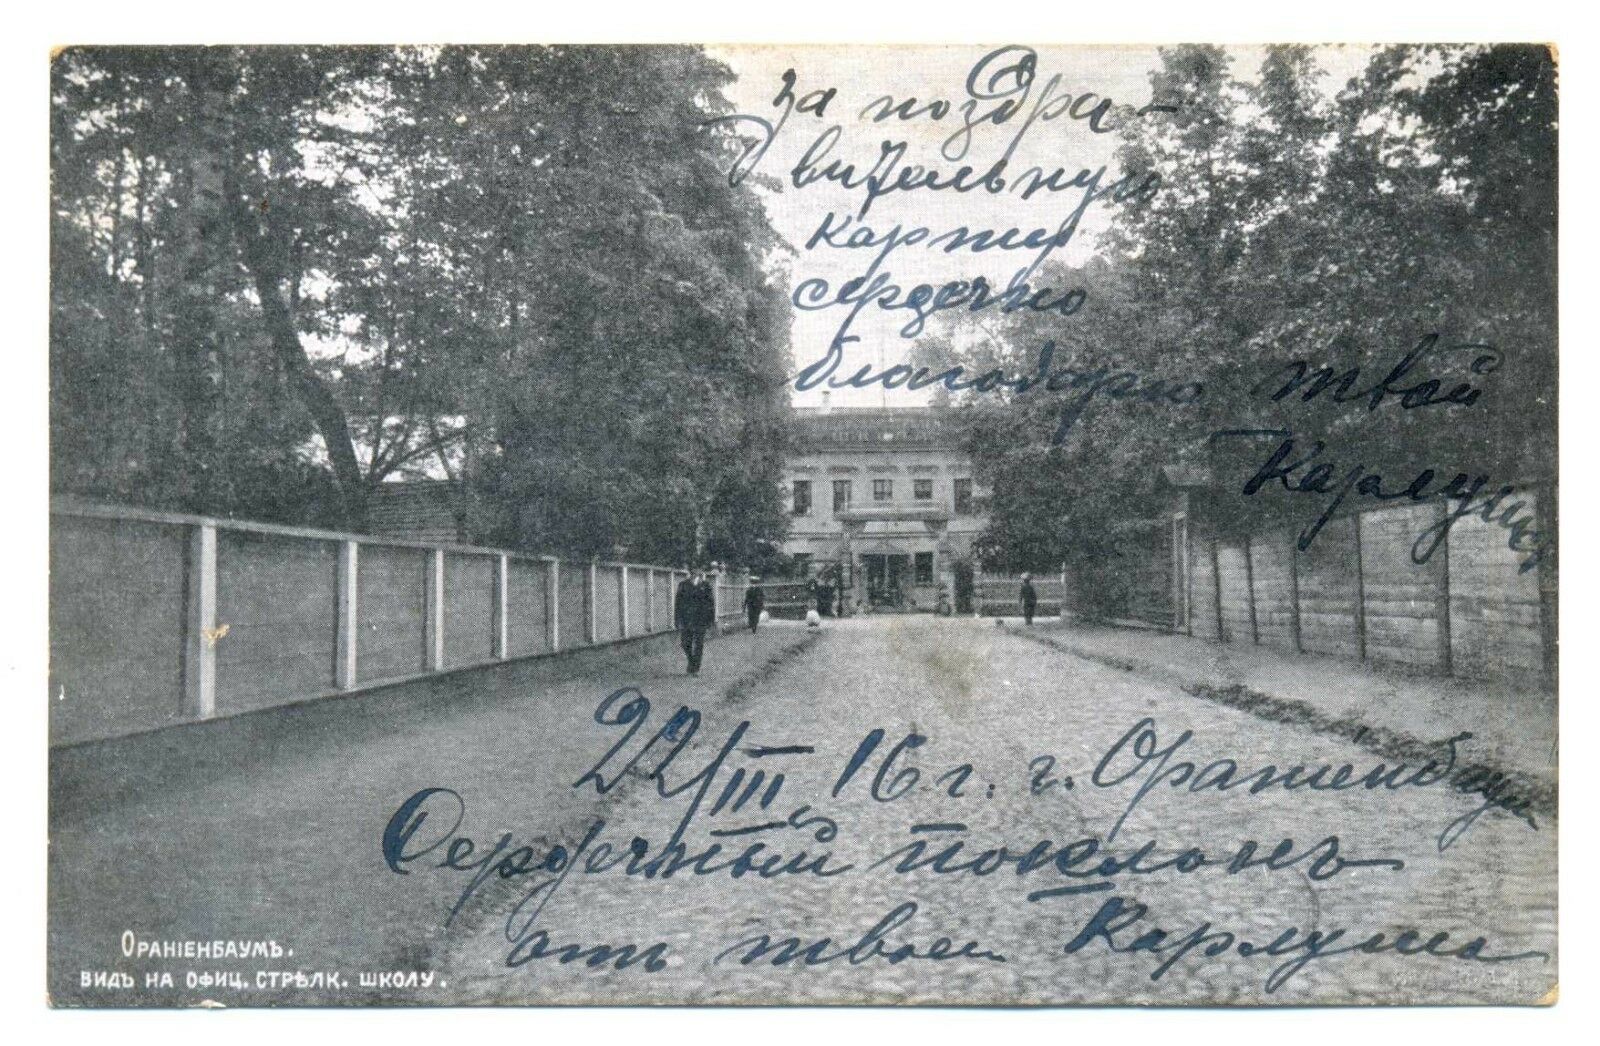 за поздра-
вительную
карту
сердечно
благодарю твой
Карлуша
22/III 16 г. г. Ораниенбаум
Сердечный поклонъ
отъ твоего Карлуша
Ораніенбаумъ.
видъ на офиц. стрѣлк. школу.